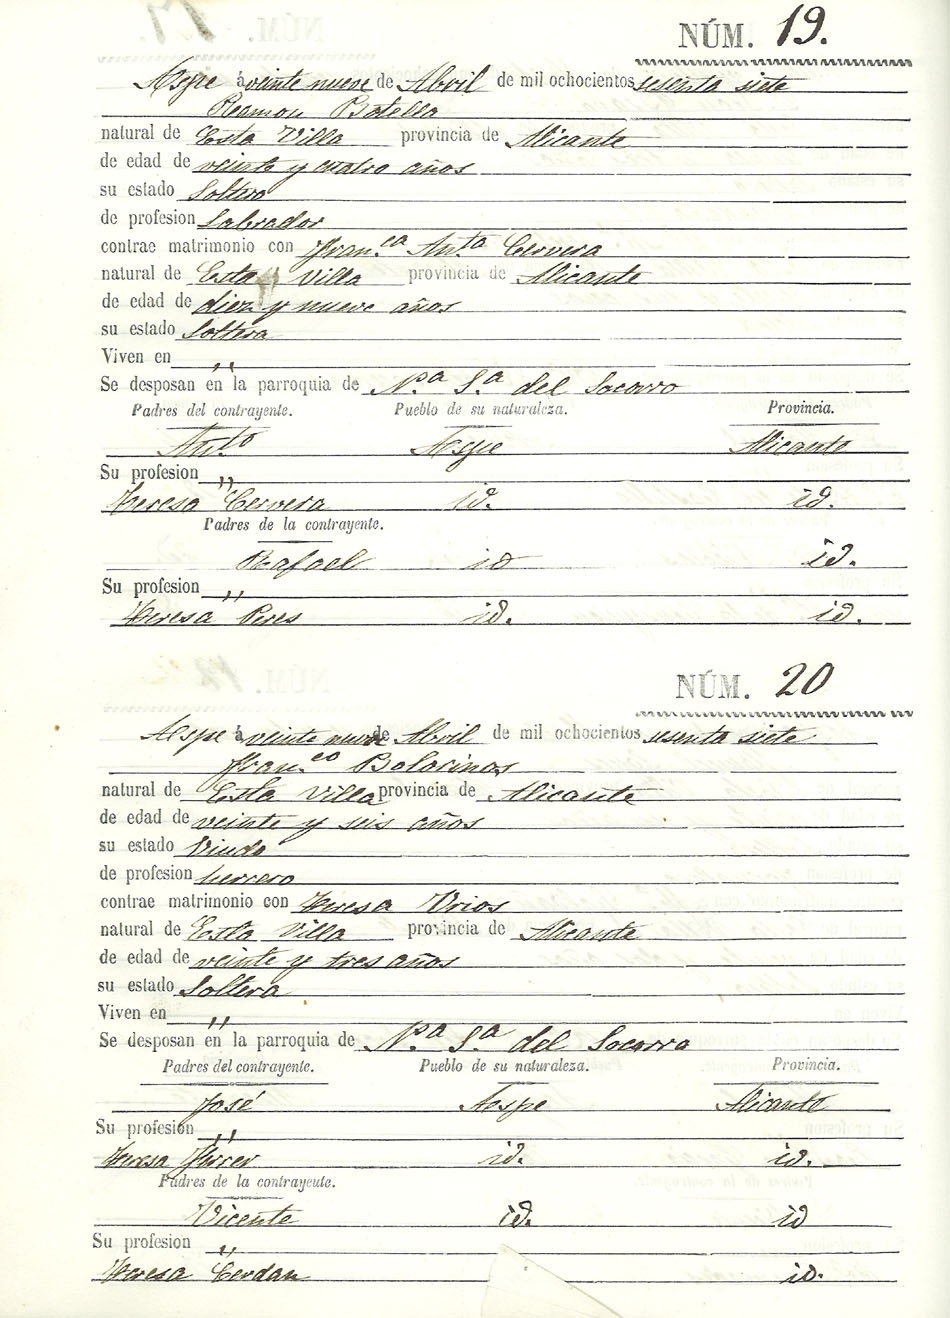 NÚM. 19.
Aspe á veinte nueve de Abril de mil ochocientos sesenta siete
Ramon Botella
natural de Esta Villa provincia de Alicante
de edad de veinte y cuatro años
su estado Soltero
de profesion Labrador
contrae matrimonio con Fran.ca Ant.a Cervera
natural de Esta Villa provincia de Alicante
de edad de diez y nueve años
su estado Soltera
Viven en ,,
Se desposan en la parroquia de N.a S.a del Socorro
Padres del contrayente. Pueblo de su naturaleza. Provincia.
Ant.o Aspe Alicante
Su profesion ,,
Teresa Cervera id. id.
Padres de la contrayente.
Rafael id id.
Su profesion ,,
Teresa Peres id. id.
NÚM. 20
Aspe á veinte nueve de Abril de mil ochocientos sesenta siete
Fran.co Bolarinos
natural de Esta Villa provincia de Alicante
de edad de veinte y seis años
su estado Viudo
de profesion herrero
contrae matrimonio con Teresa Urios
natural de Esta Villa provincia de Alicante
de edad de veinte y tres años
su estado Soltera
Viven en ,,
Se desposan en la parroquia de N.a S.a del Socorro
Padres del contrayente. Pueblo de su naturaleza. Provincia.
José Aspe Alicante
Su profesion ,,
Teresa Ferrer id. id.
Padres de la contrayente.
Vicente id. id
Su profesion ,,
Teresa Cerdan id.